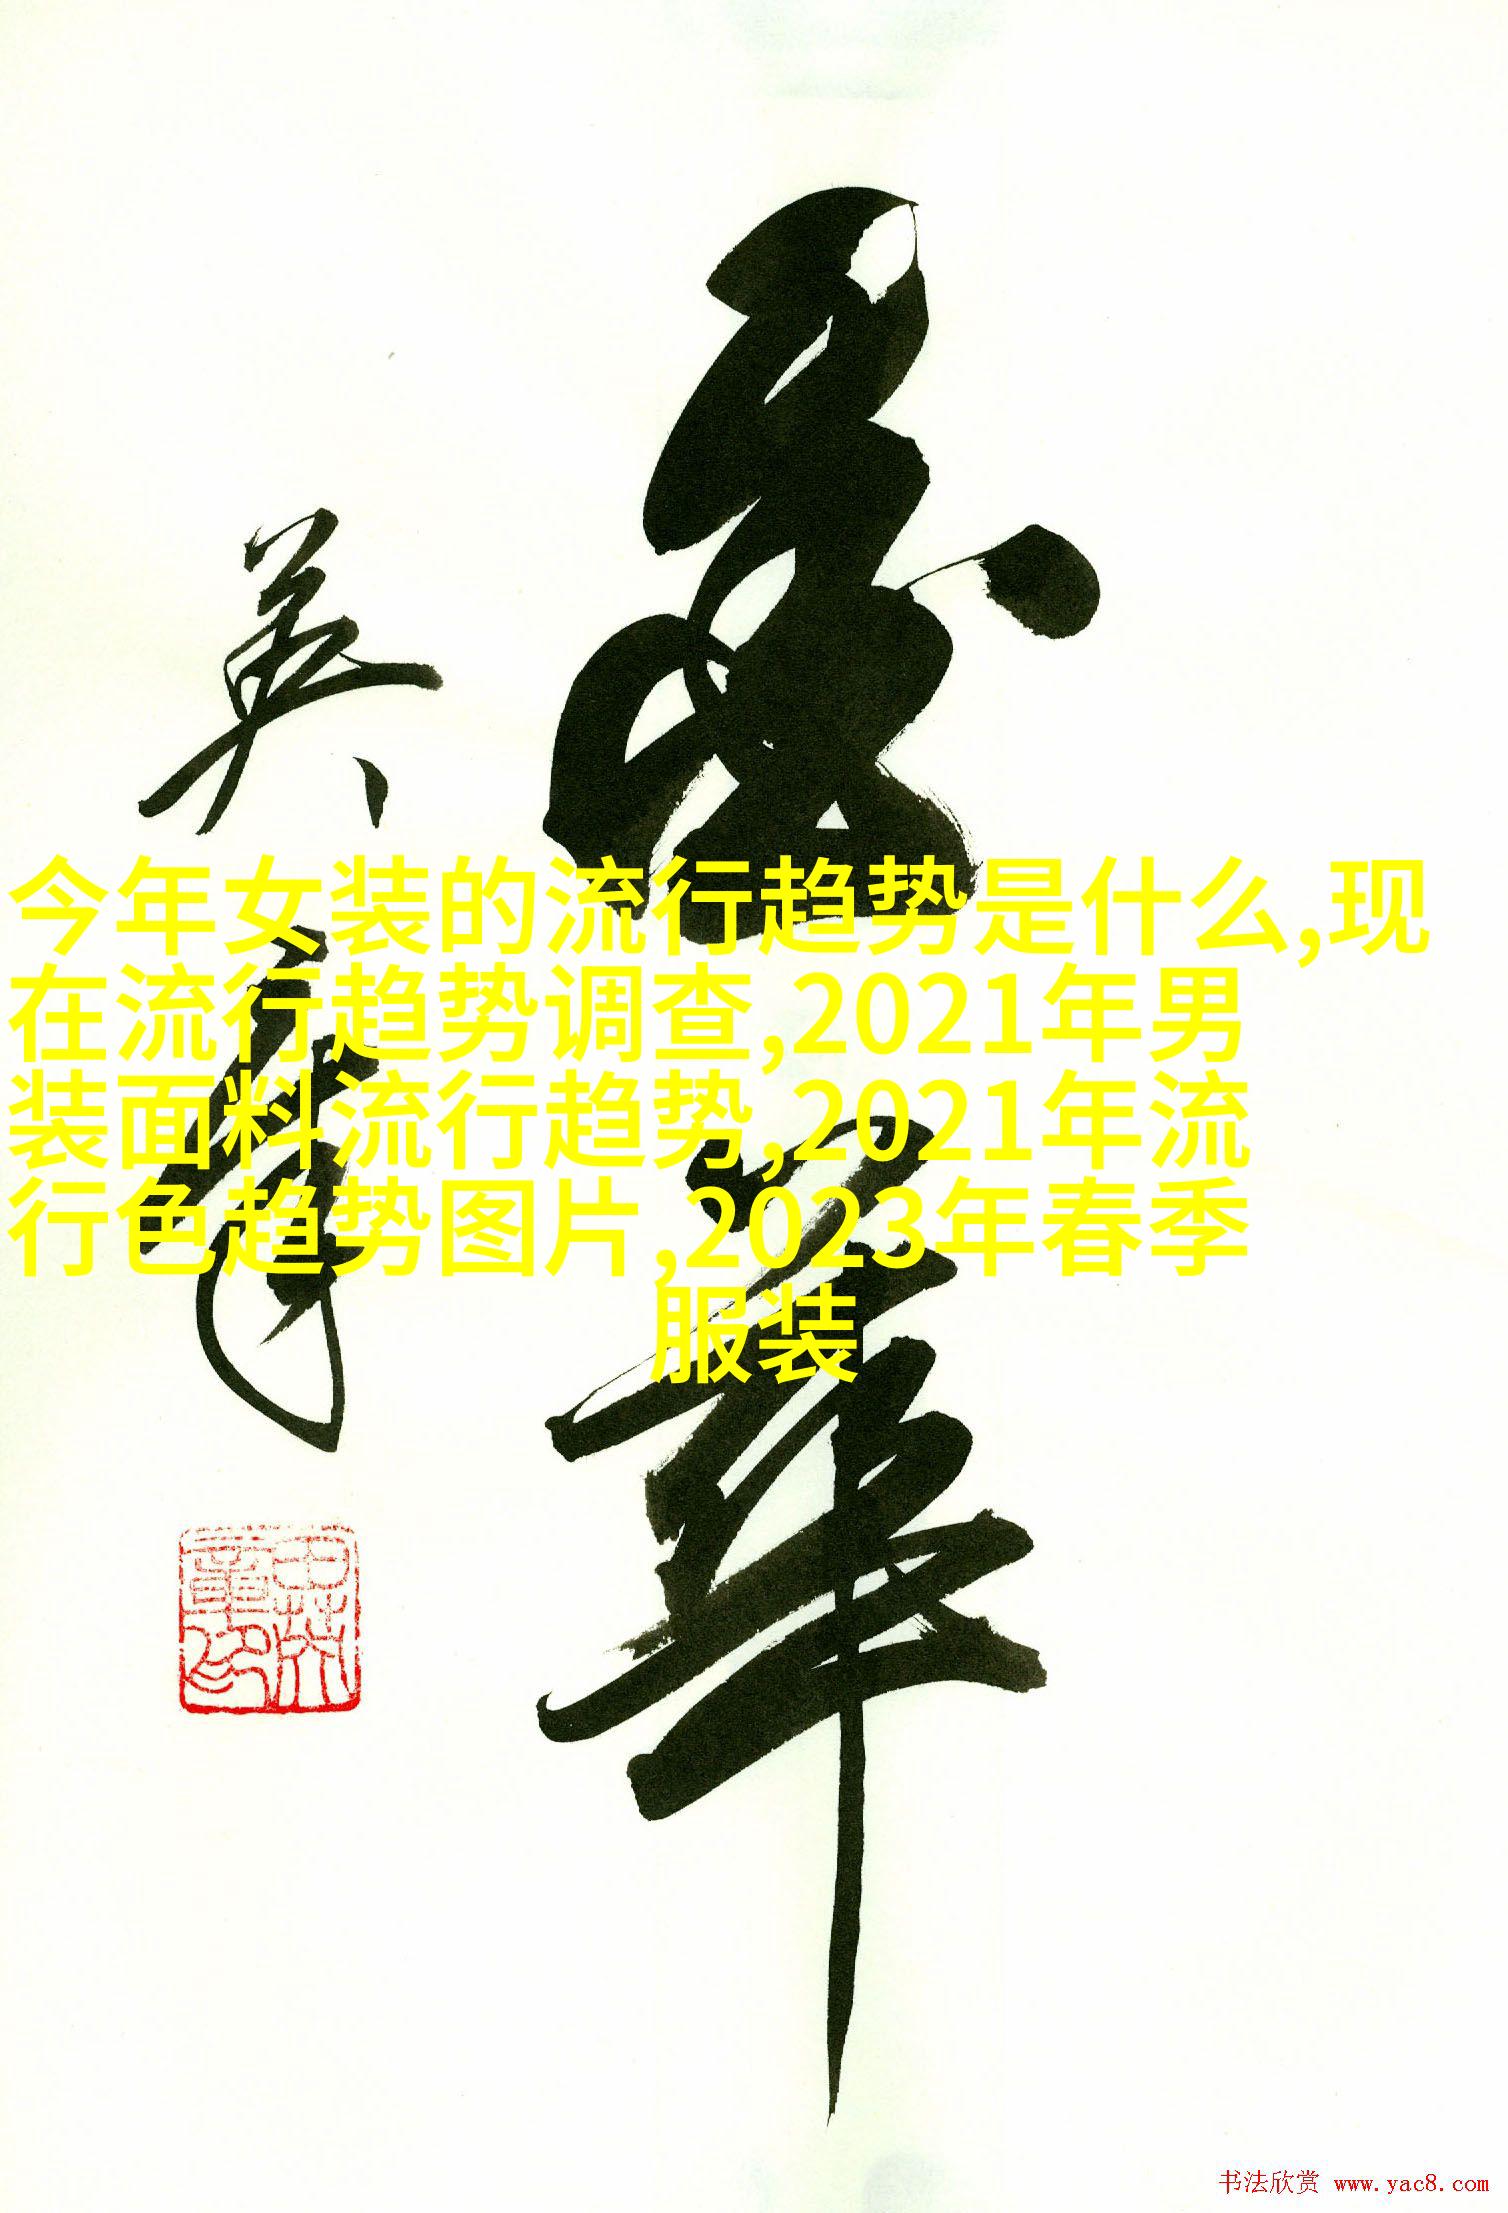 英
今年女装的流行趋势是什么,现
在流行趋势调查,2021年男
装面料流行趋势,2021年流
行色趋势图片,2023年春季
服装
华
书法欣赏 www.yac8.com